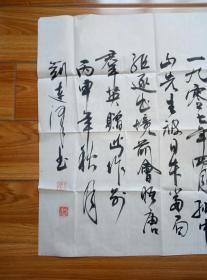 一九〇七年四月孙中
山先生被日本当局
驱逐出境前会晤唐
群英赠此作前
丙申年秋月
刘连河书